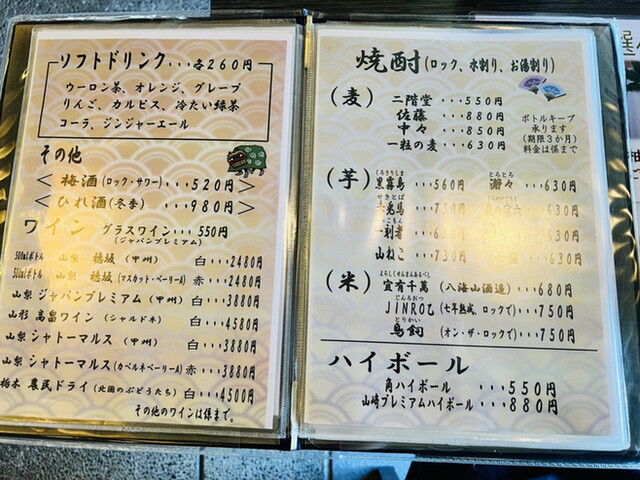 ソフトドリンク・・・各260円
ウーロン茶、オレンジ、グレープ
りんご、カルピス、冷たい緑茶
コーラ、ジンジャーエール
その他
<梅酒(ロック・サワー)・・・520円
<ひれ酒(冬季)・・・980円
ワイン グラスワイン・・・550円
(ジャパンプレミアム)
500mlボトル 山梨 穂坂(甲州) 白・・・2480円
500mlボトル 山梨 穂坂(マスカット・ベーリーA) 赤・・・2480円
山梨 ジャパンプレミアム(甲州) 白・・・3880円
山形 高畠ワイン(シャルドネ) 白・・・4580円
山梨 シャトーマルス(甲州) 白・・・3880円
山梨 シャトーマルス(カベルネベーリーA) 赤・・・3880円
栃木 農民ドライ(北国のぶどうたち) 白・・・4500円
その他のワインは係まで。
焼酎(ロック、水割り、お湯割り)
(麦) 二階堂・・・550円
佐藤・・・880円
中々・・・850円
一粒の麦・・・630円
ボトルキープ
承ります
(期限3か月)
料金は係まで
(芋) 黒霧島・・・560円
・・・730円
一刻者・・・630円
山ねこ・・・730円
・・・630円
630円
630円
(米) 宜有千萬(八海山酒造)・・・680円
JINRO乙(七年熟成、ロックで)・・・750円
鳥飼(オン・ザ・ロックで)・・・750円
ハイボール
角ハイボール・・・550円
山崎プレミアムハイボール・・・880円